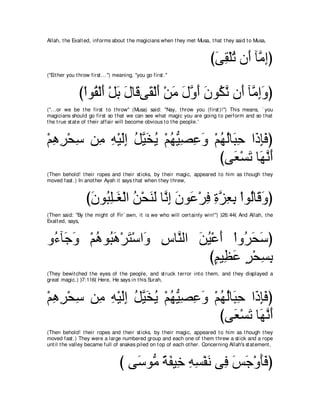 Allah, the Exalted, informs about the magicians when they met Musa, that they said to Musa,
(إِمَّآ أَن تُلْقِىَ)
("Either you throw first...") meaning, "you go first."
(وَإِمَّآ أَن نَّكُونَ أَوَّلَ مَنْ أَلْقَى-قَالَ بَلْ أَلْقُواْ)
("...or we be the first to throw" (Musa) said: "Nay, throw you (first)!") This means, `you
magicians should go first so that we can see what magic you are going to perform and so that
the true state of their affair will become obvious to the people.'
(فَإِذَا حِبَالُهُمْ وَعِصِيُّهُمْ يُخَيَّلُ إِلَيْهِ مِن سِحْرِهِمْ
أَنَّهَا تَسْعَى)
(Then behold! their ropes and their sticks, by their magic, appeared to him as though they
moved fast.) In another Ayah it says that when they threw,
(وَقَالُواْ بِعِزَّةِ فِرْعَونَ إِنَّا لَنَحْنُ الْغَـلِبُونَ)
(Then said: "By the might of Fir`awn, it is we who will certainly win!") (26:44) And Allah, the
Exalted, says,
(سَحَرُواْ أَعْيُنَ النَّاسِ وَاسْتَرْهَبُوهُمْ وَجَآءُو
بِسِحْرٍ عَظِيمٍ)
(They bewitched the eyes of the people, and struck terror into them, and they displayed a
great magic.) )7:116( Here, He says in this Surah,
(فَإِذَا حِبَالُهُمْ وَعِصِيُّهُمْ يُخَيَّلُ إِلَيْهِ مِن سِحْرِهِمْ
أَنَّهَا تَسْعَى)
(Then behold! their ropes and their sticks, by their magic, appeared to him as though they
moved fast.) They were a large numbered group and each one of them threw a stick and a rope
until the valley became full of snakes piled on top of each other. Concerning Allah's statement,
(فَأَوْجَسَ فِى نَفْسِهِ خِيفَةً مُّوسَى )